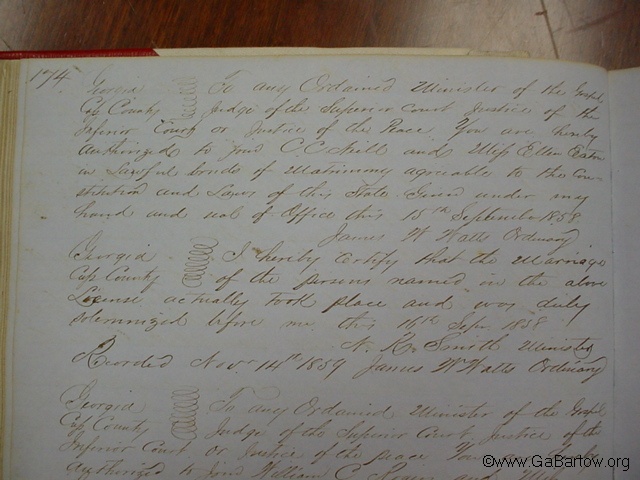 174
Georgia To any Ordained Minister of the Gospel
Cass County Judge of the Superior Court Justice of the
Inferior Court or Justice of the Peace. You are hereby
Authorized to join C. C. Neill and Miss Ellen Eaton
in Lawful bonds of Matrimony agreeable to the Con-
stitution and Laws of this State Given under my
hand and seal of Office this 15th September 1858
James W Watts Ordinary
Georgia I hereby certify that the Marriage
Cass County of the persons named in the above
License actually took place and was duly
solemnized before me this 16th Sep. 1858
N. K. Smith Minister
Recorded Novr 14th 1859 James W Watts Ordinary
Georgia To any Ordained Minister of the Gospel
Cass County Judge of the Superior Court Justice of the
Inferior Court or Justice of the peace You are
Authorized to Join William C.
©www.GaBartow.org